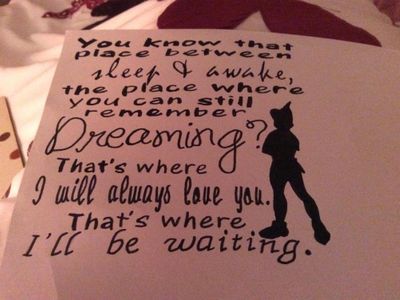 You know that
place between
sleep & awake,
the place where
you can still
remember
Dreaming?
That's where
I will always love you.
That's where
I'll be waiting.